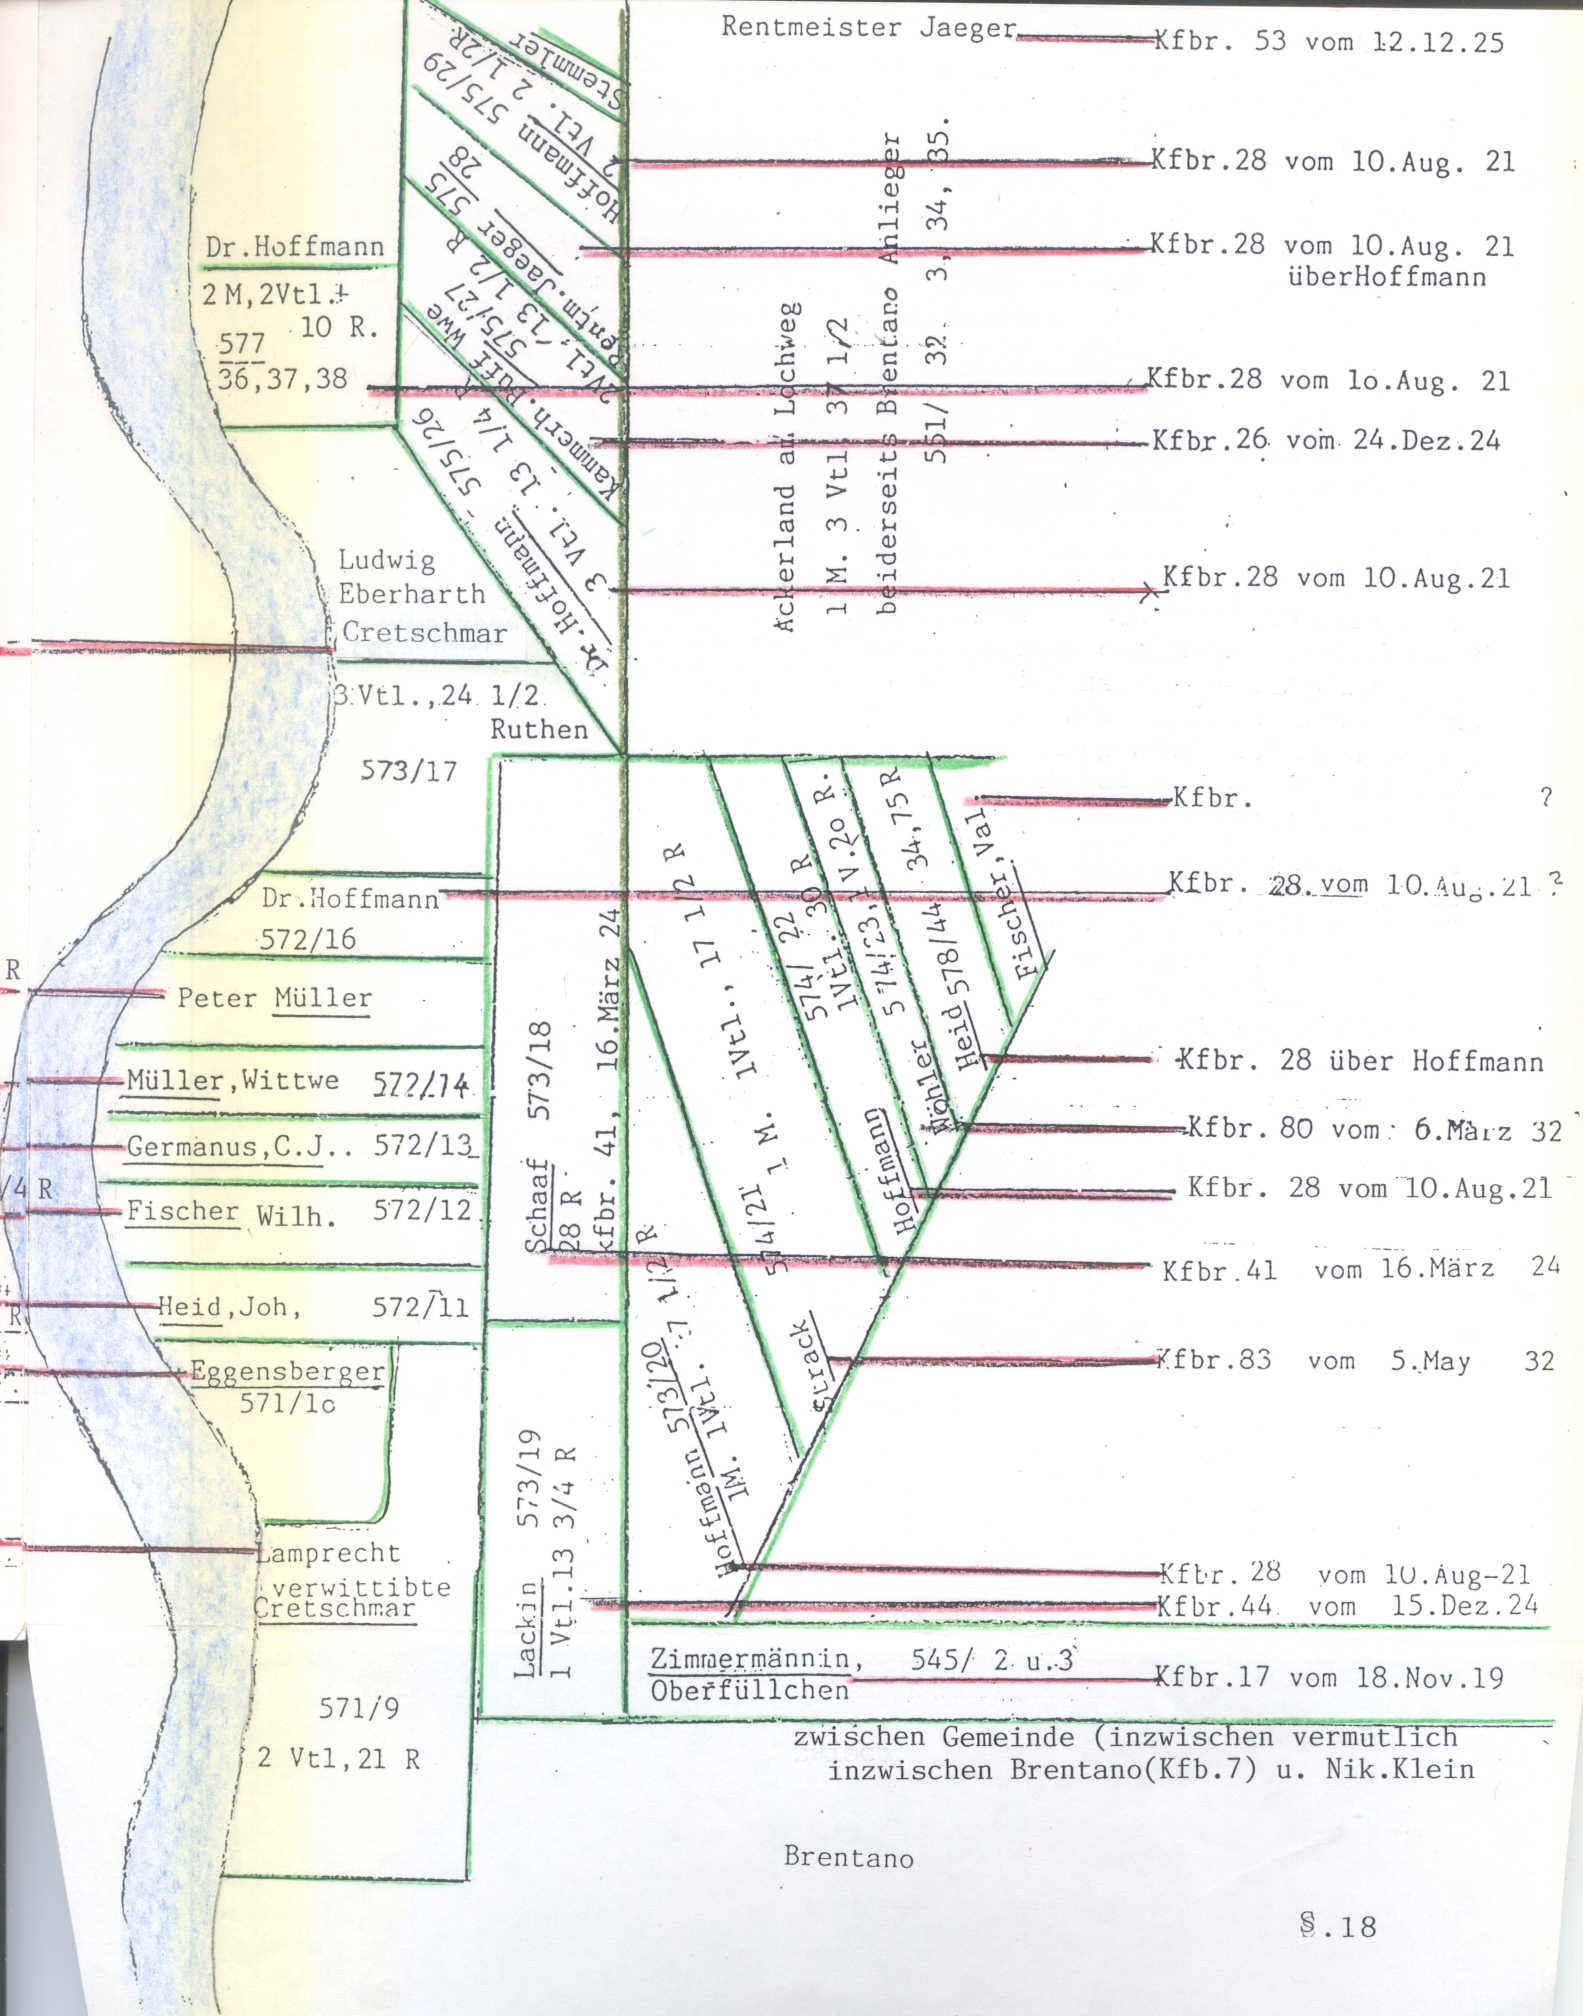 Rentmeister Jaeger
Kfbr. 53 vom 12.12.25
Stemmler
2 Vtl. 2 1/2R
Hoffmann 575/29
Kfbr.28 vom 10.Aug. 21
Kfbr.28 vom 10.Aug. 21
überHoffmann
Rentm.Jaeger 575
28
2Vtl, 13 1/2 R
Kfbr.28 vom 1o.Aug. 21
Kammerh.Buff Wwe
575/27
Kfbr.26 vom 24.Dez.24
Dr.Hoffmann 575/26
3 Vtl. 13 1/4 R
Kfbr.28 vom 10.Aug.21
Ackerland am Lochweg
1 M. 3 Vtl 37 1/2
beiderseits Brentano Anlieger
551/ 32 3, 34, 35.
Dr.Hoffmann
2 M,2Vtl.+
10 R.
577
36,37,38
Ludwig
Eberharth
Cretschmar
3 Vtl.,24 1/2
Ruthen
573/17
Dr.Hoffmann
572/16
R
Peter Müller
Müller,Wittwe 572/14
Germanus,C.J.. 572/13
/4 R
Fischer Wilh. 572/12
Heid,Joh, 572/11
R
Eggensberger
571/1o
Lamprecht
verwittibte
Cretschmar
571/9
2 Vtl,21 R
Schaaf 573/18
28 R
kfbr. 41, 16.März 24
Lackin 573/19
1 Vtl.13 3/4 R
Hoffmann 573/20
1M. 1Vtl. 7 1/2 R
Strack
574/21 1 M. 1Vtl., 17 1/2 R
Hoffmann
574/ 22
1Vtl. 30 R
Wöhler 574/23,1 V.20 R.
Heid 578/44 34,75 R
Fischer,Val
Kfbr. ?
Kfbr. 28.vom 10.Aug.21 ?
Kfbr. 28 über Hoffmann
Kfbr. 80 vom 6.März 32
Kfbr. 28 vom 10.Aug.21
Kfbr.41 vom 16.März 24
Kfbr.83 vom 5.May 32
Kfbr. 28 vom 10.Aug-21
Kfbr.44 vom 15.Dez.24
Zimmermännin, 545/ 2 u.3
Oberfüllchen
Kfbr.17 vom 18.Nov.19
zwischen Gemeinde (inzwischen vermutlich
inzwischen Brentano(Kfb.7) u. Nik.Klein
Brentano
S.18